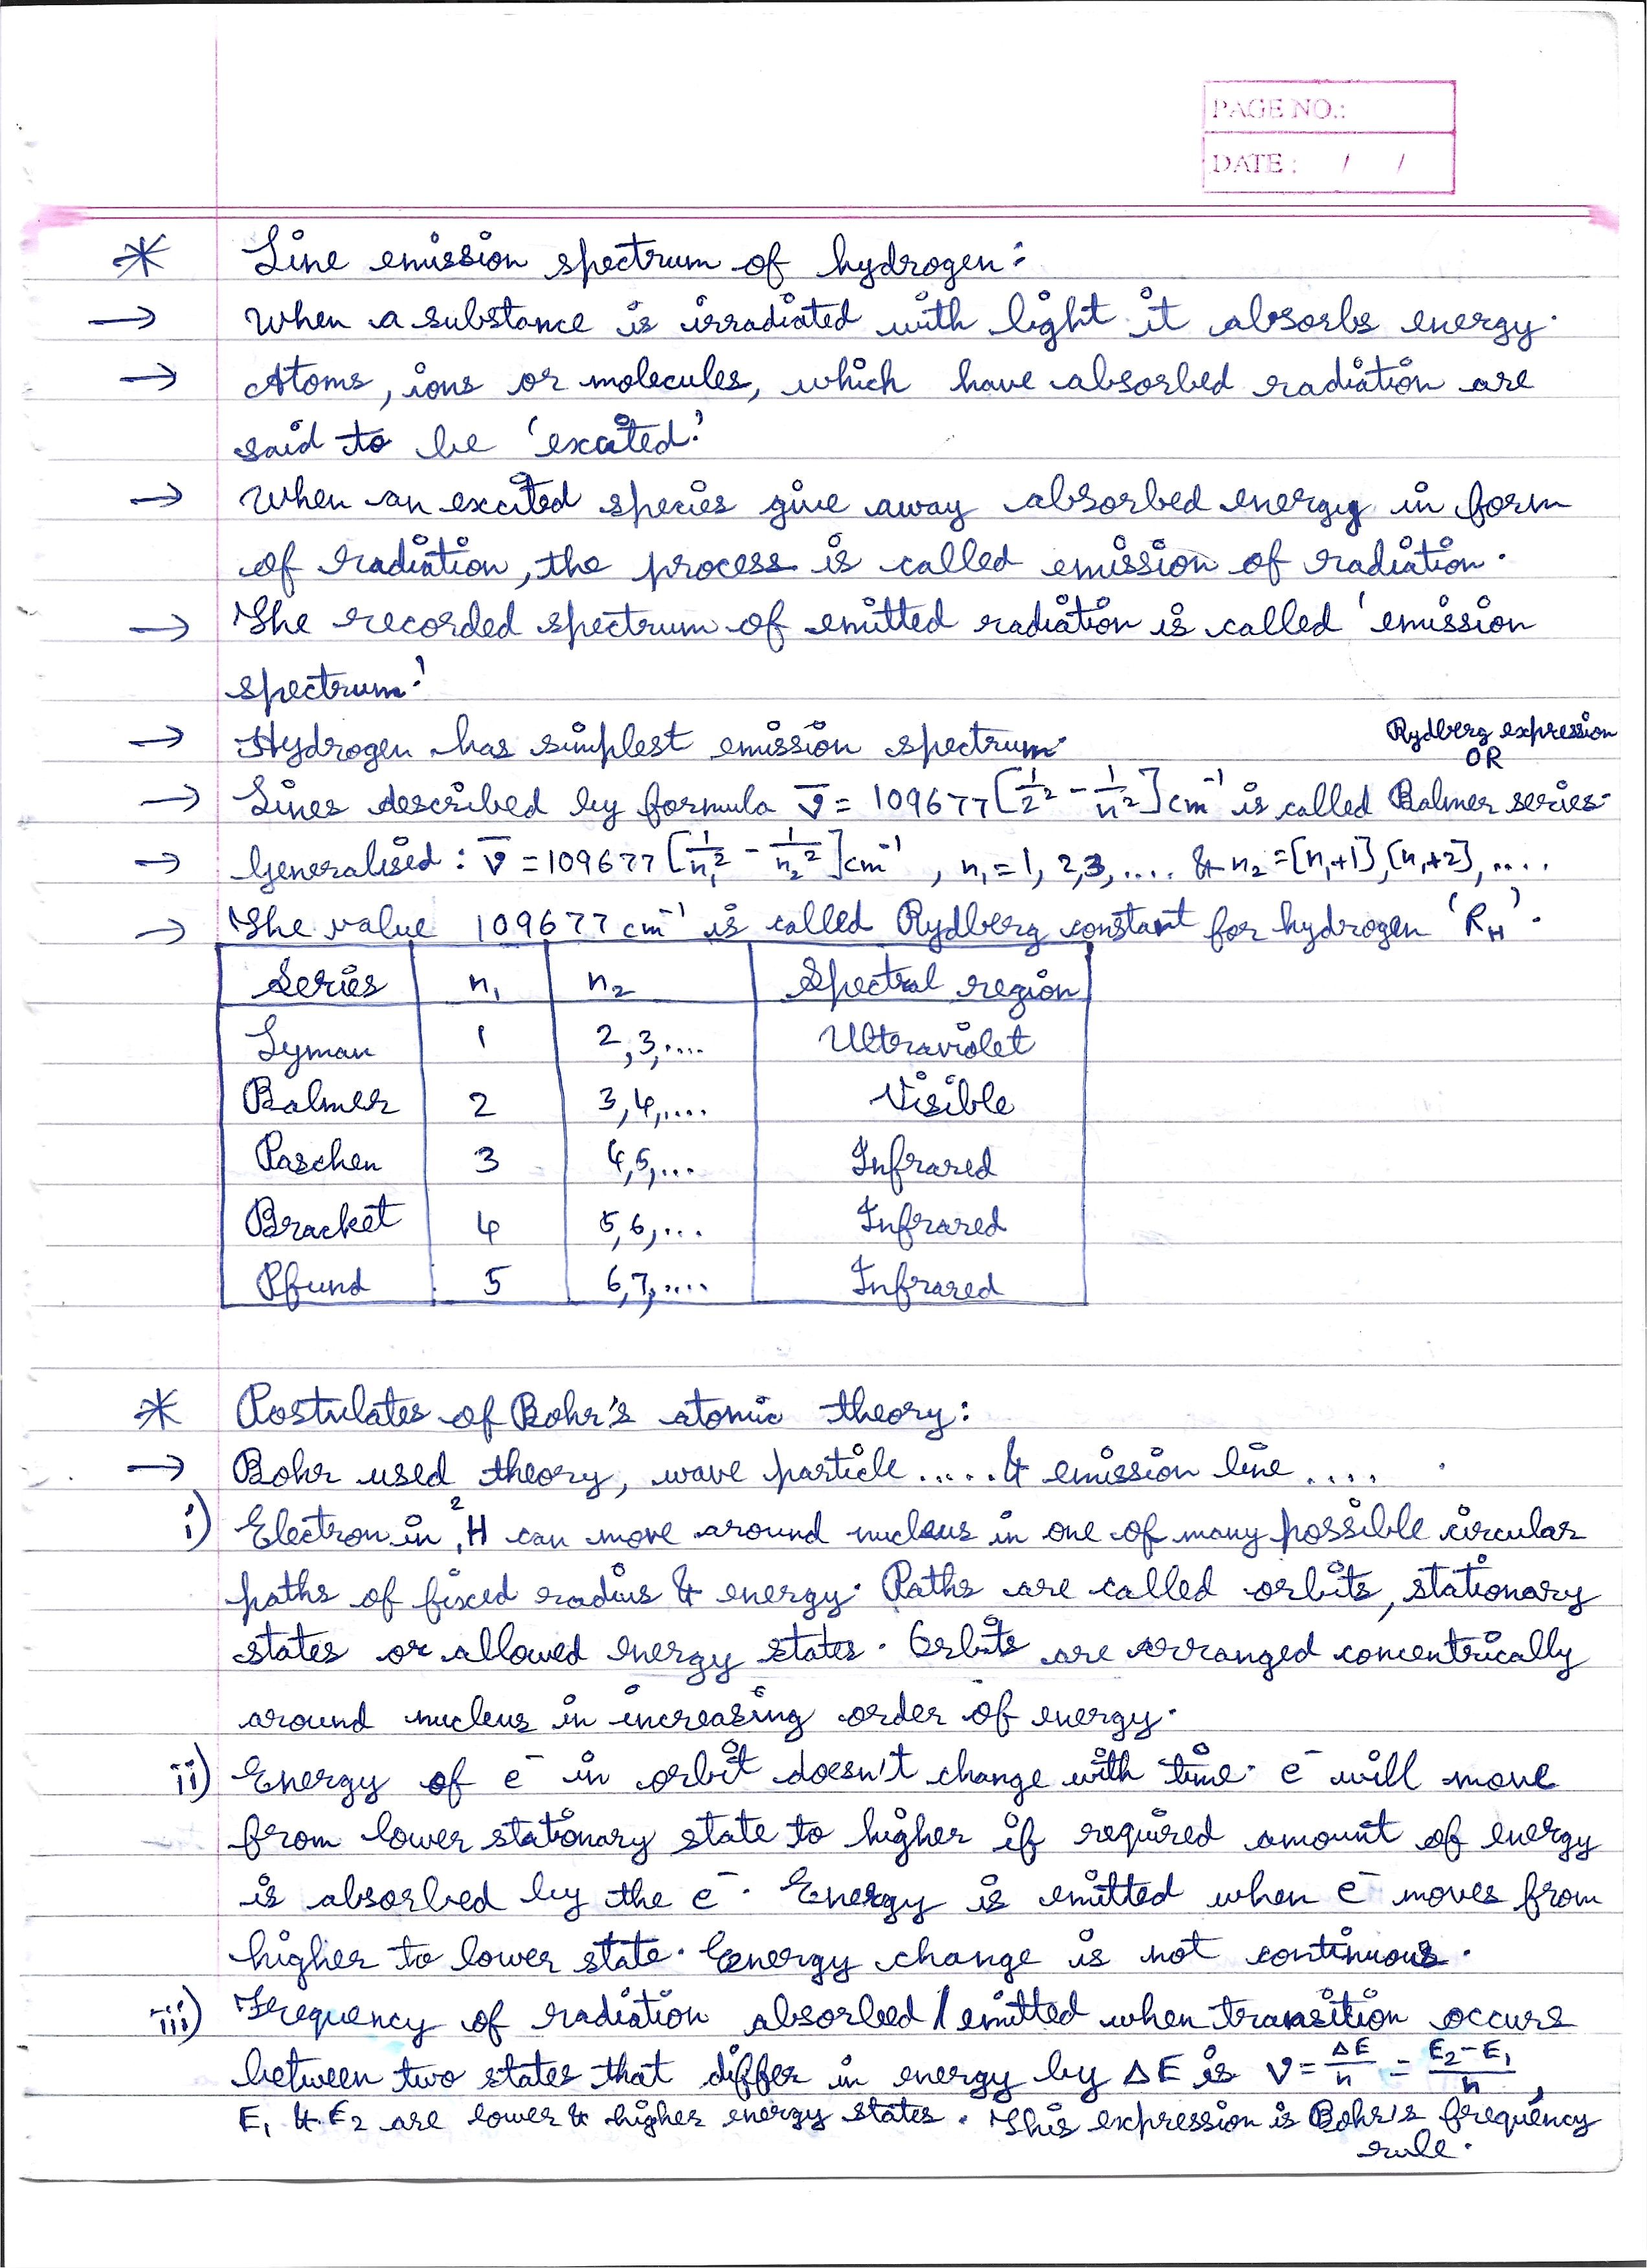 PAGE NO.:
DATE : / /
* Line emission spectrum of hydrogen:
→ When a substance is irradiated with light it absorbs energy.
→ Atoms, ions or molecules, which have absorbed radiation are
said to be 'excited.'
→ When an excited species give away absorbed energy in form
of radiation, the process is called emission of radiation.
→ The recorded spectrum of emitted radiation is called 'emission
spectrum.'
→ Hydrogen has simplest emission spectrum.
Rydberg expression
OR
→ Lines described by formula ν̅ = 109677 [1/2² - 1/n²] cm⁻¹ is called Balmer series.
→ Generalised : ν̅ = 109677 [1/n₁² - 1/n₂²] cm⁻¹ , n₁ = 1, 2, 3, .... & n₂ = [n₁+1], [n₁+2], ....
→ The value 109677 cm⁻¹ is called Rydberg constant for hydrogen 'R_H'.
Series n₁ n₂ Spectral region
Lyman 1 2,3,.... Ultraviolet
Balmer 2 3,4,.... Visible
Paschen 3 4,5,... Infrared
Bracket 4 5,6,... Infrared
Pfund 5 6,7,.... Infrared
* Postulates of Bohr's atomic theory:
→ Bohr used theory, wave particle ..... & emission line ....
i) Electron in ²₁H can move around nucleus in one of many possible circular
paths of fixed radius & energy. Paths are called orbits, stationary
states or allowed energy states. Orbits are arranged concentrically
around nucleus in increasing order of energy.
ii) Energy of e⁻ in orbit doesn't change with time. e⁻ will move
from lower stationary state to higher if required amount of energy
is absorbed by the e⁻. Energy is emitted when e⁻ moves from
higher to lower state. Energy change is not continuous.
iii) Frequency of radiation absorbed / emitted when transition occurs
between two states that differ in energy by ΔE is ν = ΔE/h = E₂-E₁/h ,
E₁ & E₂ are lower & higher energy states. This expression is Bohr's frequency
rule.